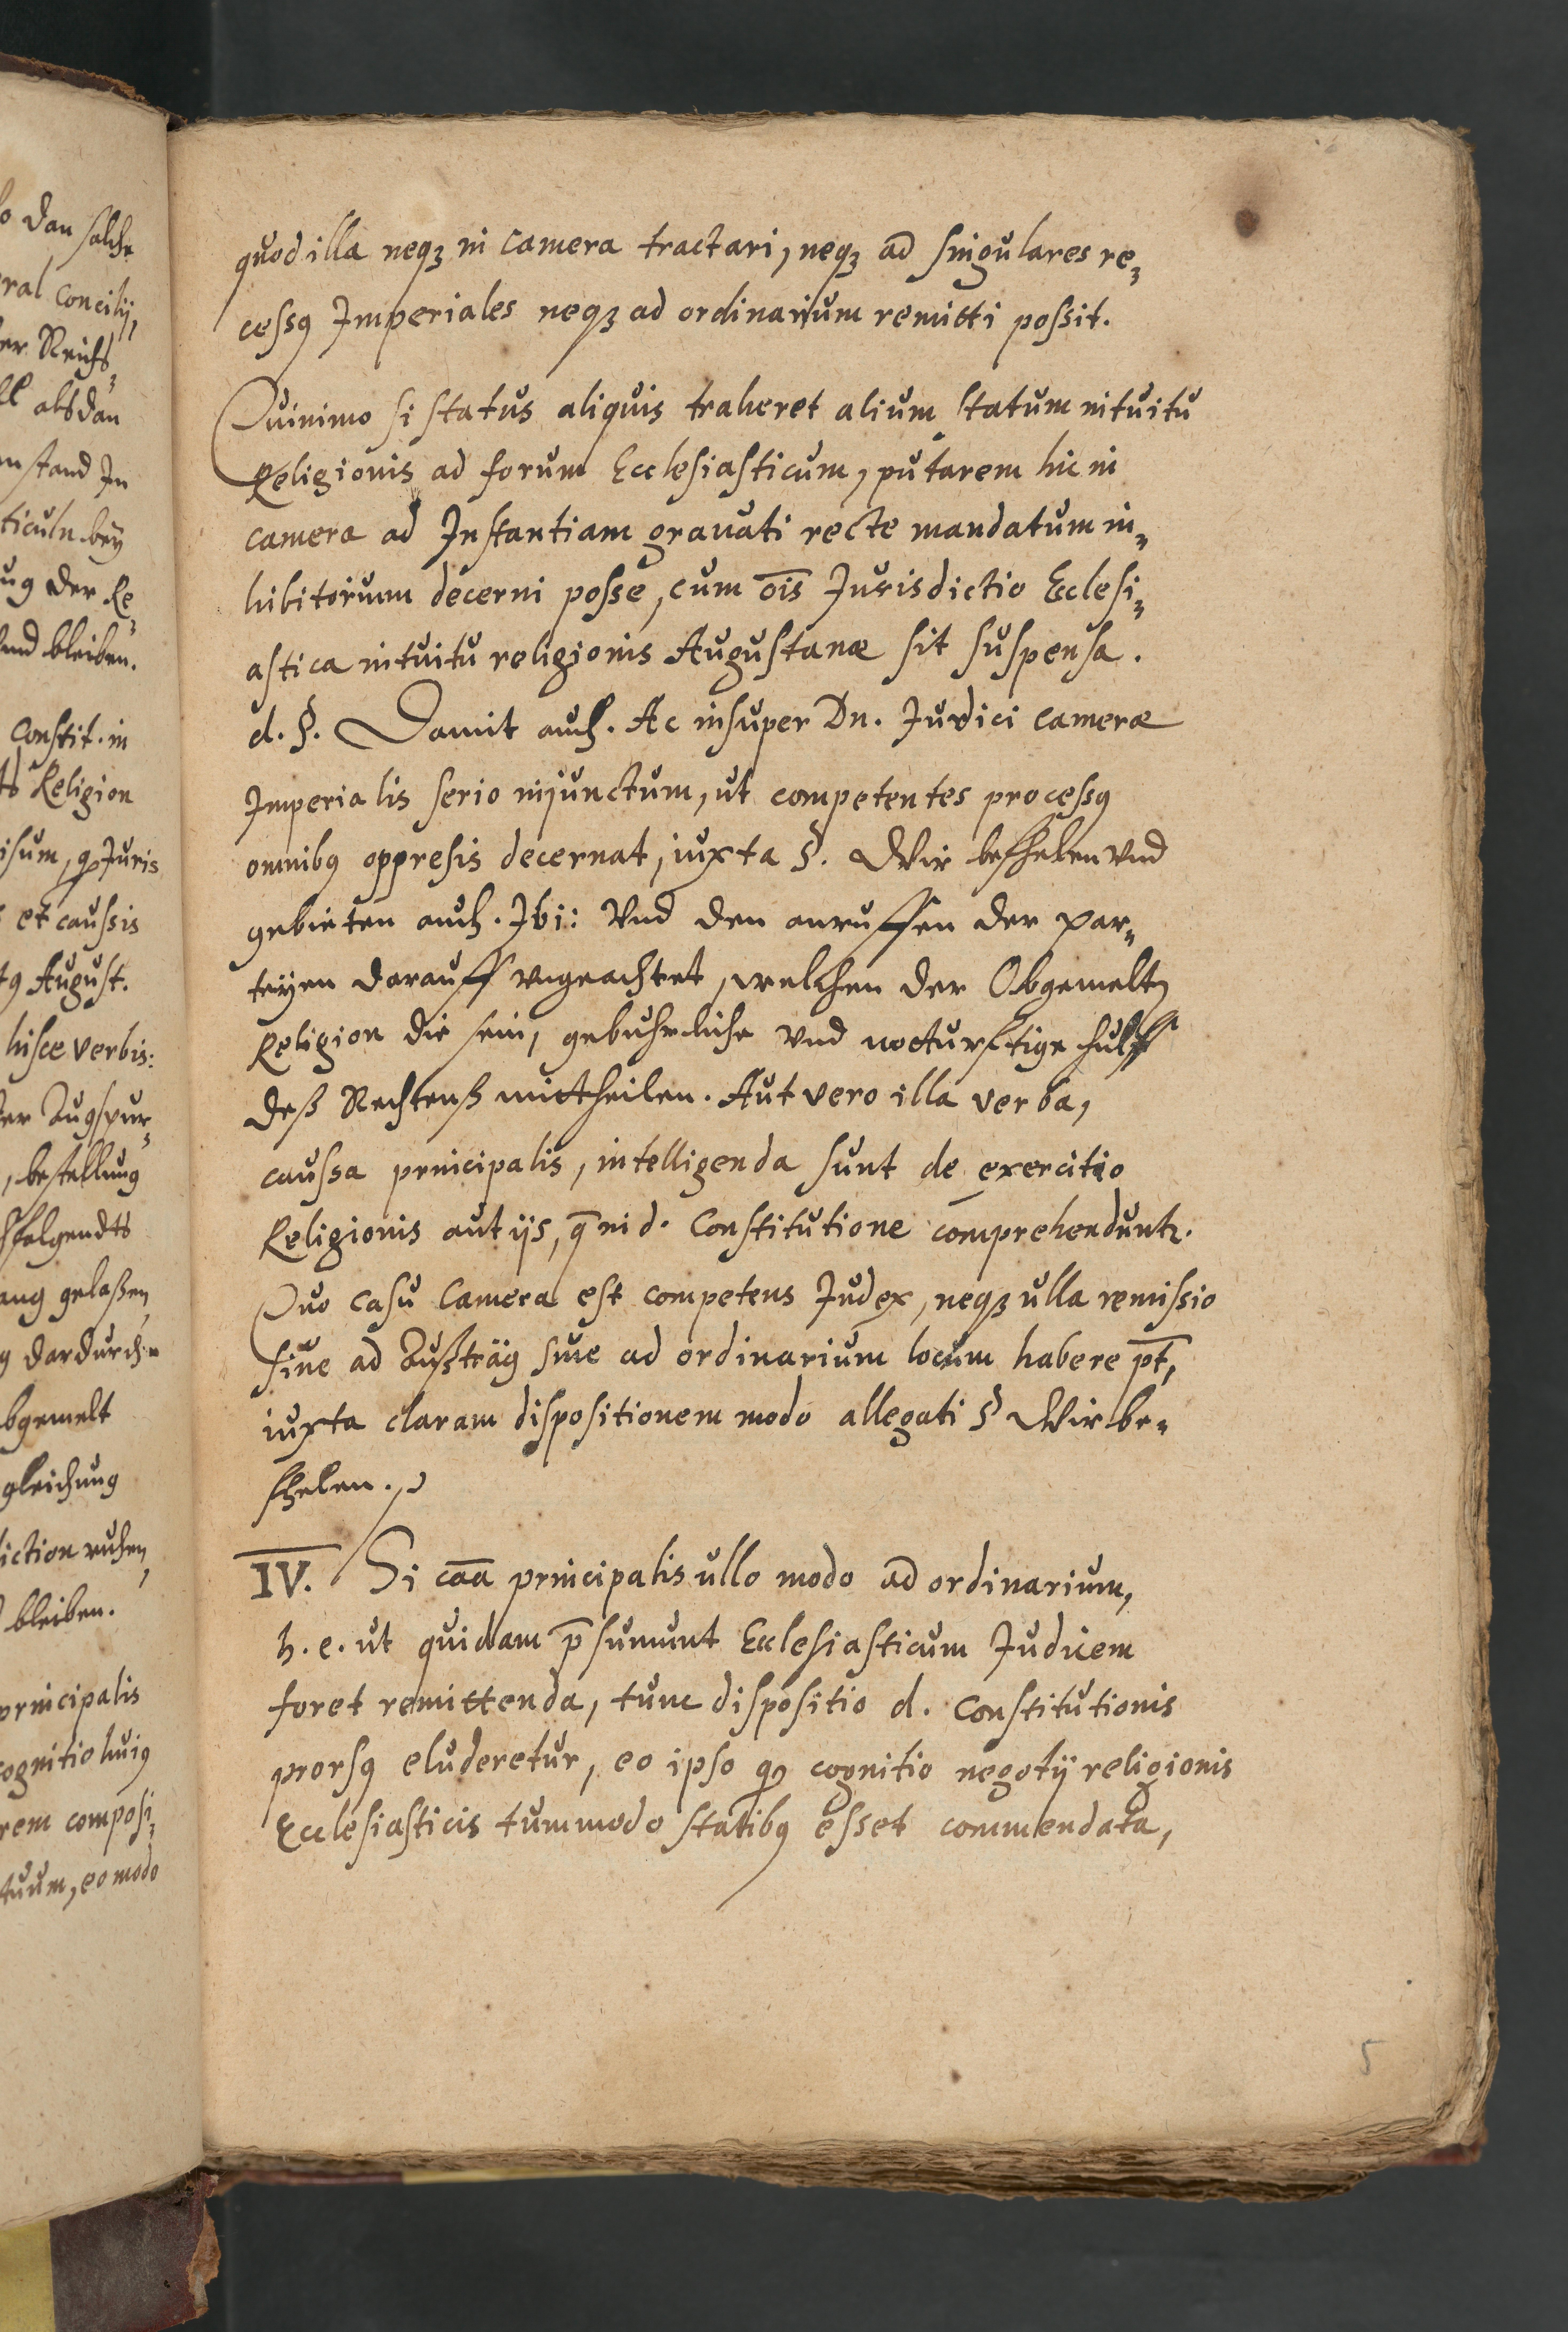 o dan solche
ral concilij,
er Reichs
ll alsdan
nstand In
ticuln beÿ
ug der Re
end bleiben.
Constit. in
ts Religion
isum, qꝫ Juris
et caussis
tꝰ August.
hisce verbis:
der Augspur
, bestellung
chfolgendts
ang gelaßen,
g dardurch
bgemelt
gleichung
iction ruhen,
bleiben.
principalis
cognitio huiꝰ
rem composi
tuum, eo modo
quod illa neqꝫ in camera tractari, neqꝫ ad singulares re⸗
cessꝰ Imperiales neqꝫ ad ordinarium remitti possit.
Quinimo si status aliquis traheret alium statum intuitu
Religionis ad forum Ecclesiasticum, putarem hic in
camera ad Instantiam gravati recte mandatum in⸗
hibitorium decerni posse, cum oīs Jurisdictio Ecclesi⸗
astica intuitu religionis Augustanæ sit suspensa.
d. §. Damit auch. Ac insuper Dn. Judici cameræ
Imperialis serio injunctum, ut competentes processꝰ
omnibꝰ oppresis decernat, iuxta §. Wir befhelen vnd
gebieten auch. Ibi: Vnd den anruffen der par⸗
teÿen darauff vngeachtet, welchen der Obgemeltn
Religion die sein, gebuhrliche vnd notturftige hulff
deß Rechtenß mittheilen. Aut vero illa verba,
caussa principalis, intelligenda sunt de exercitio
Religionis aut ijs, q̄ in d. Constitutione comprehenduntꝛ.
Quo casu Camera est competens Judex, neqꝫ ulla remissio
siue ad Außträg siue ad ordinarium locum habere pt̄,
iuxta claram dispositionem modo allegati § Wir be⸗
fhelen.
IV. Si cāā principalis ullo modo ad ordinarium,
h. e. ut quidam p̄sumunt Ecclesiasticum Judicem
foret remittenda, tunc dispositio d. Constitutionis
prorsꝰ eluderetur, eo ipso qꝫ cognitio negotij religionis
Ecclesiasticis tummodo statibꝰ esset commendata,
5